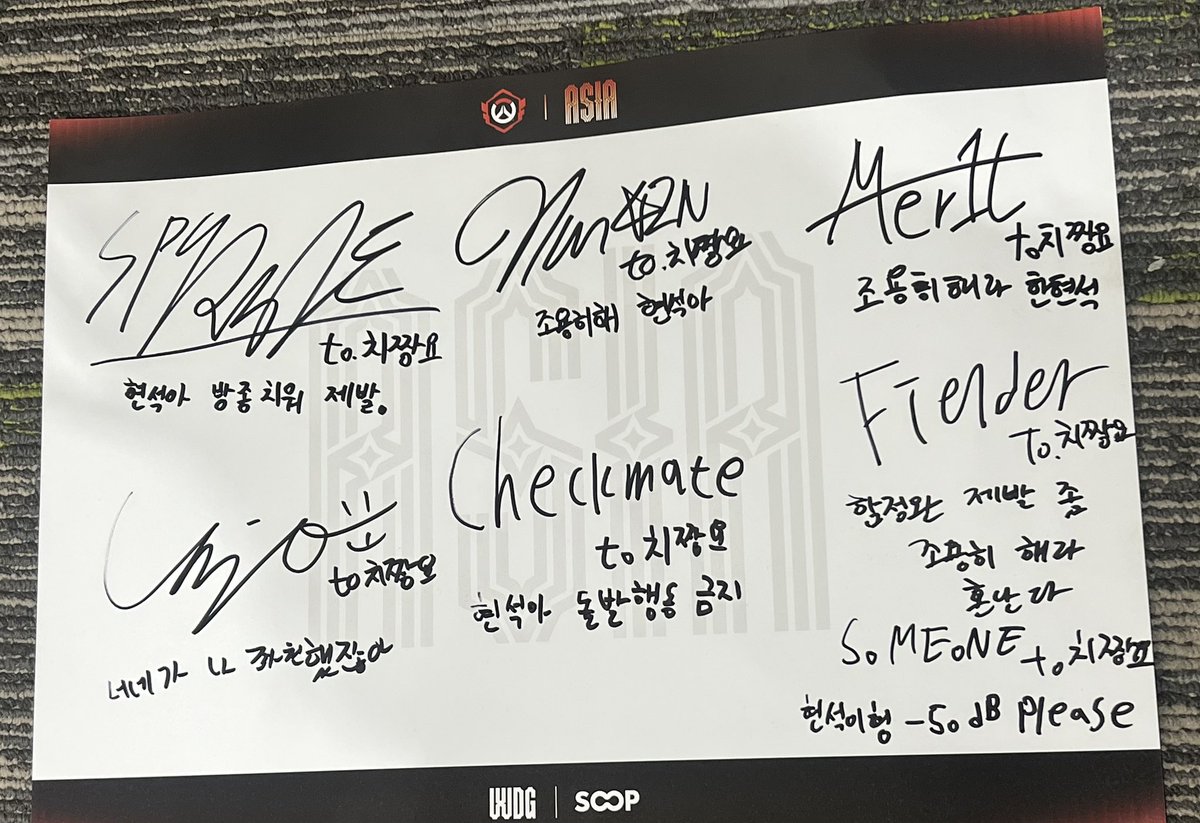 ASIA
SPYRANE
to. 치짱요
현석아 방종치워 제발.
to. 치짱요
조용히해 현석아
MerIt
to 치짱요
조용히해라 한현석
to 치짱요
Checkmate
to 치짱요
현석아 돌발행동 금지
Fielder
To. 치짱요
제발 좀
조용히 해라
혼난다
SoMEoNE to 치짱요
현석이형 -50dB Please
WDG
SOOP
ASIA